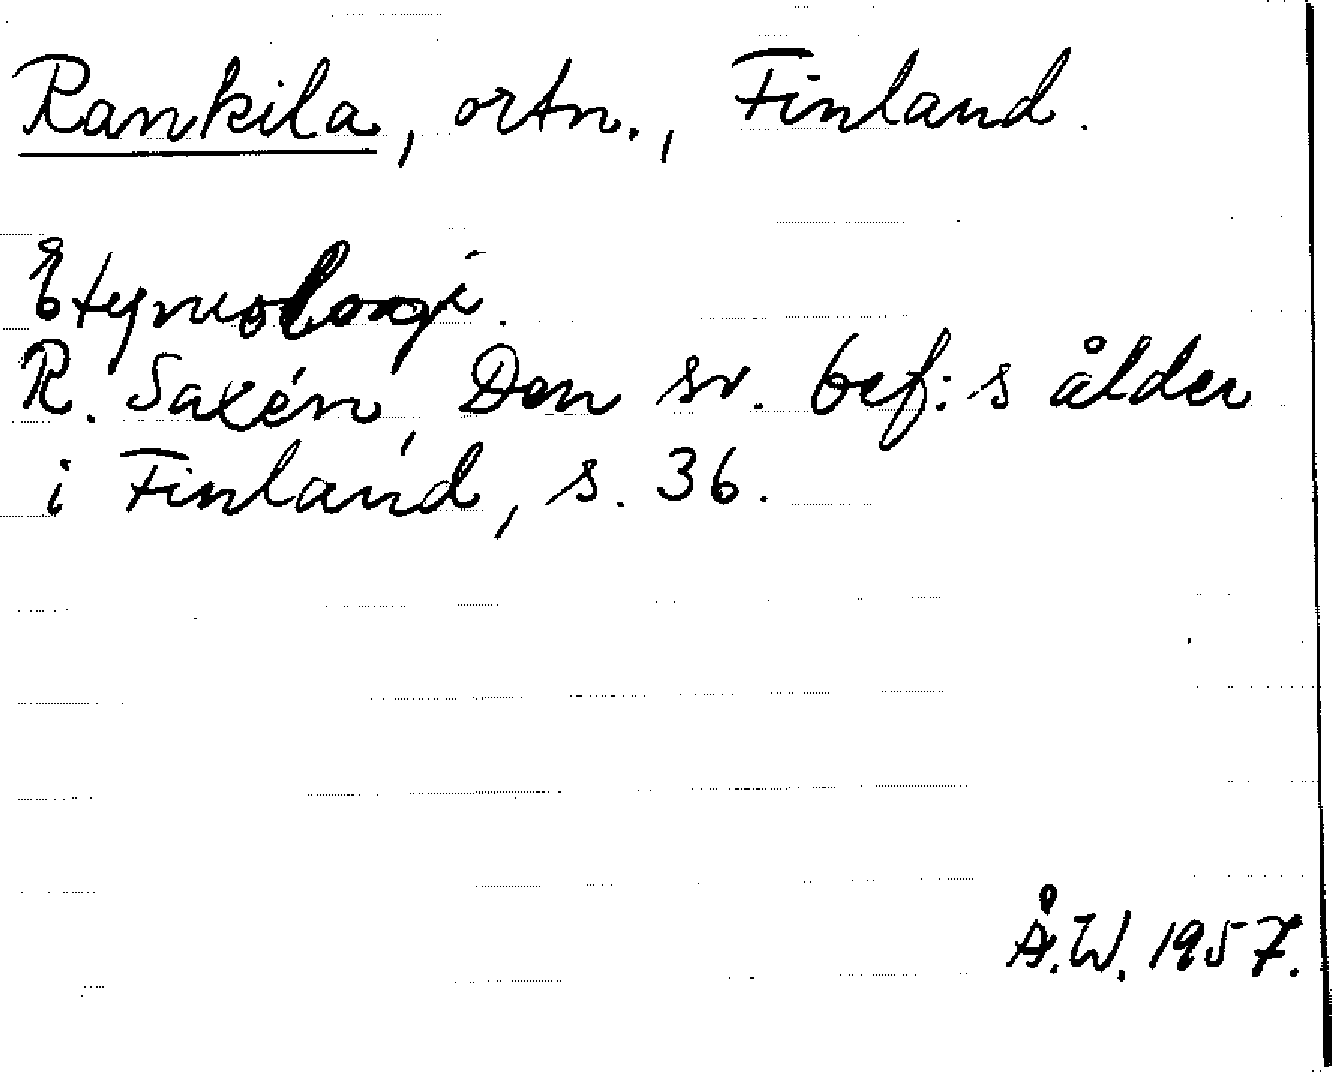 Rankila, ortn., Finland.
Etymologi.
R. Saxén, Den sv. bef:s ålder
i Finland, s. 36.
Å.W. 1957.